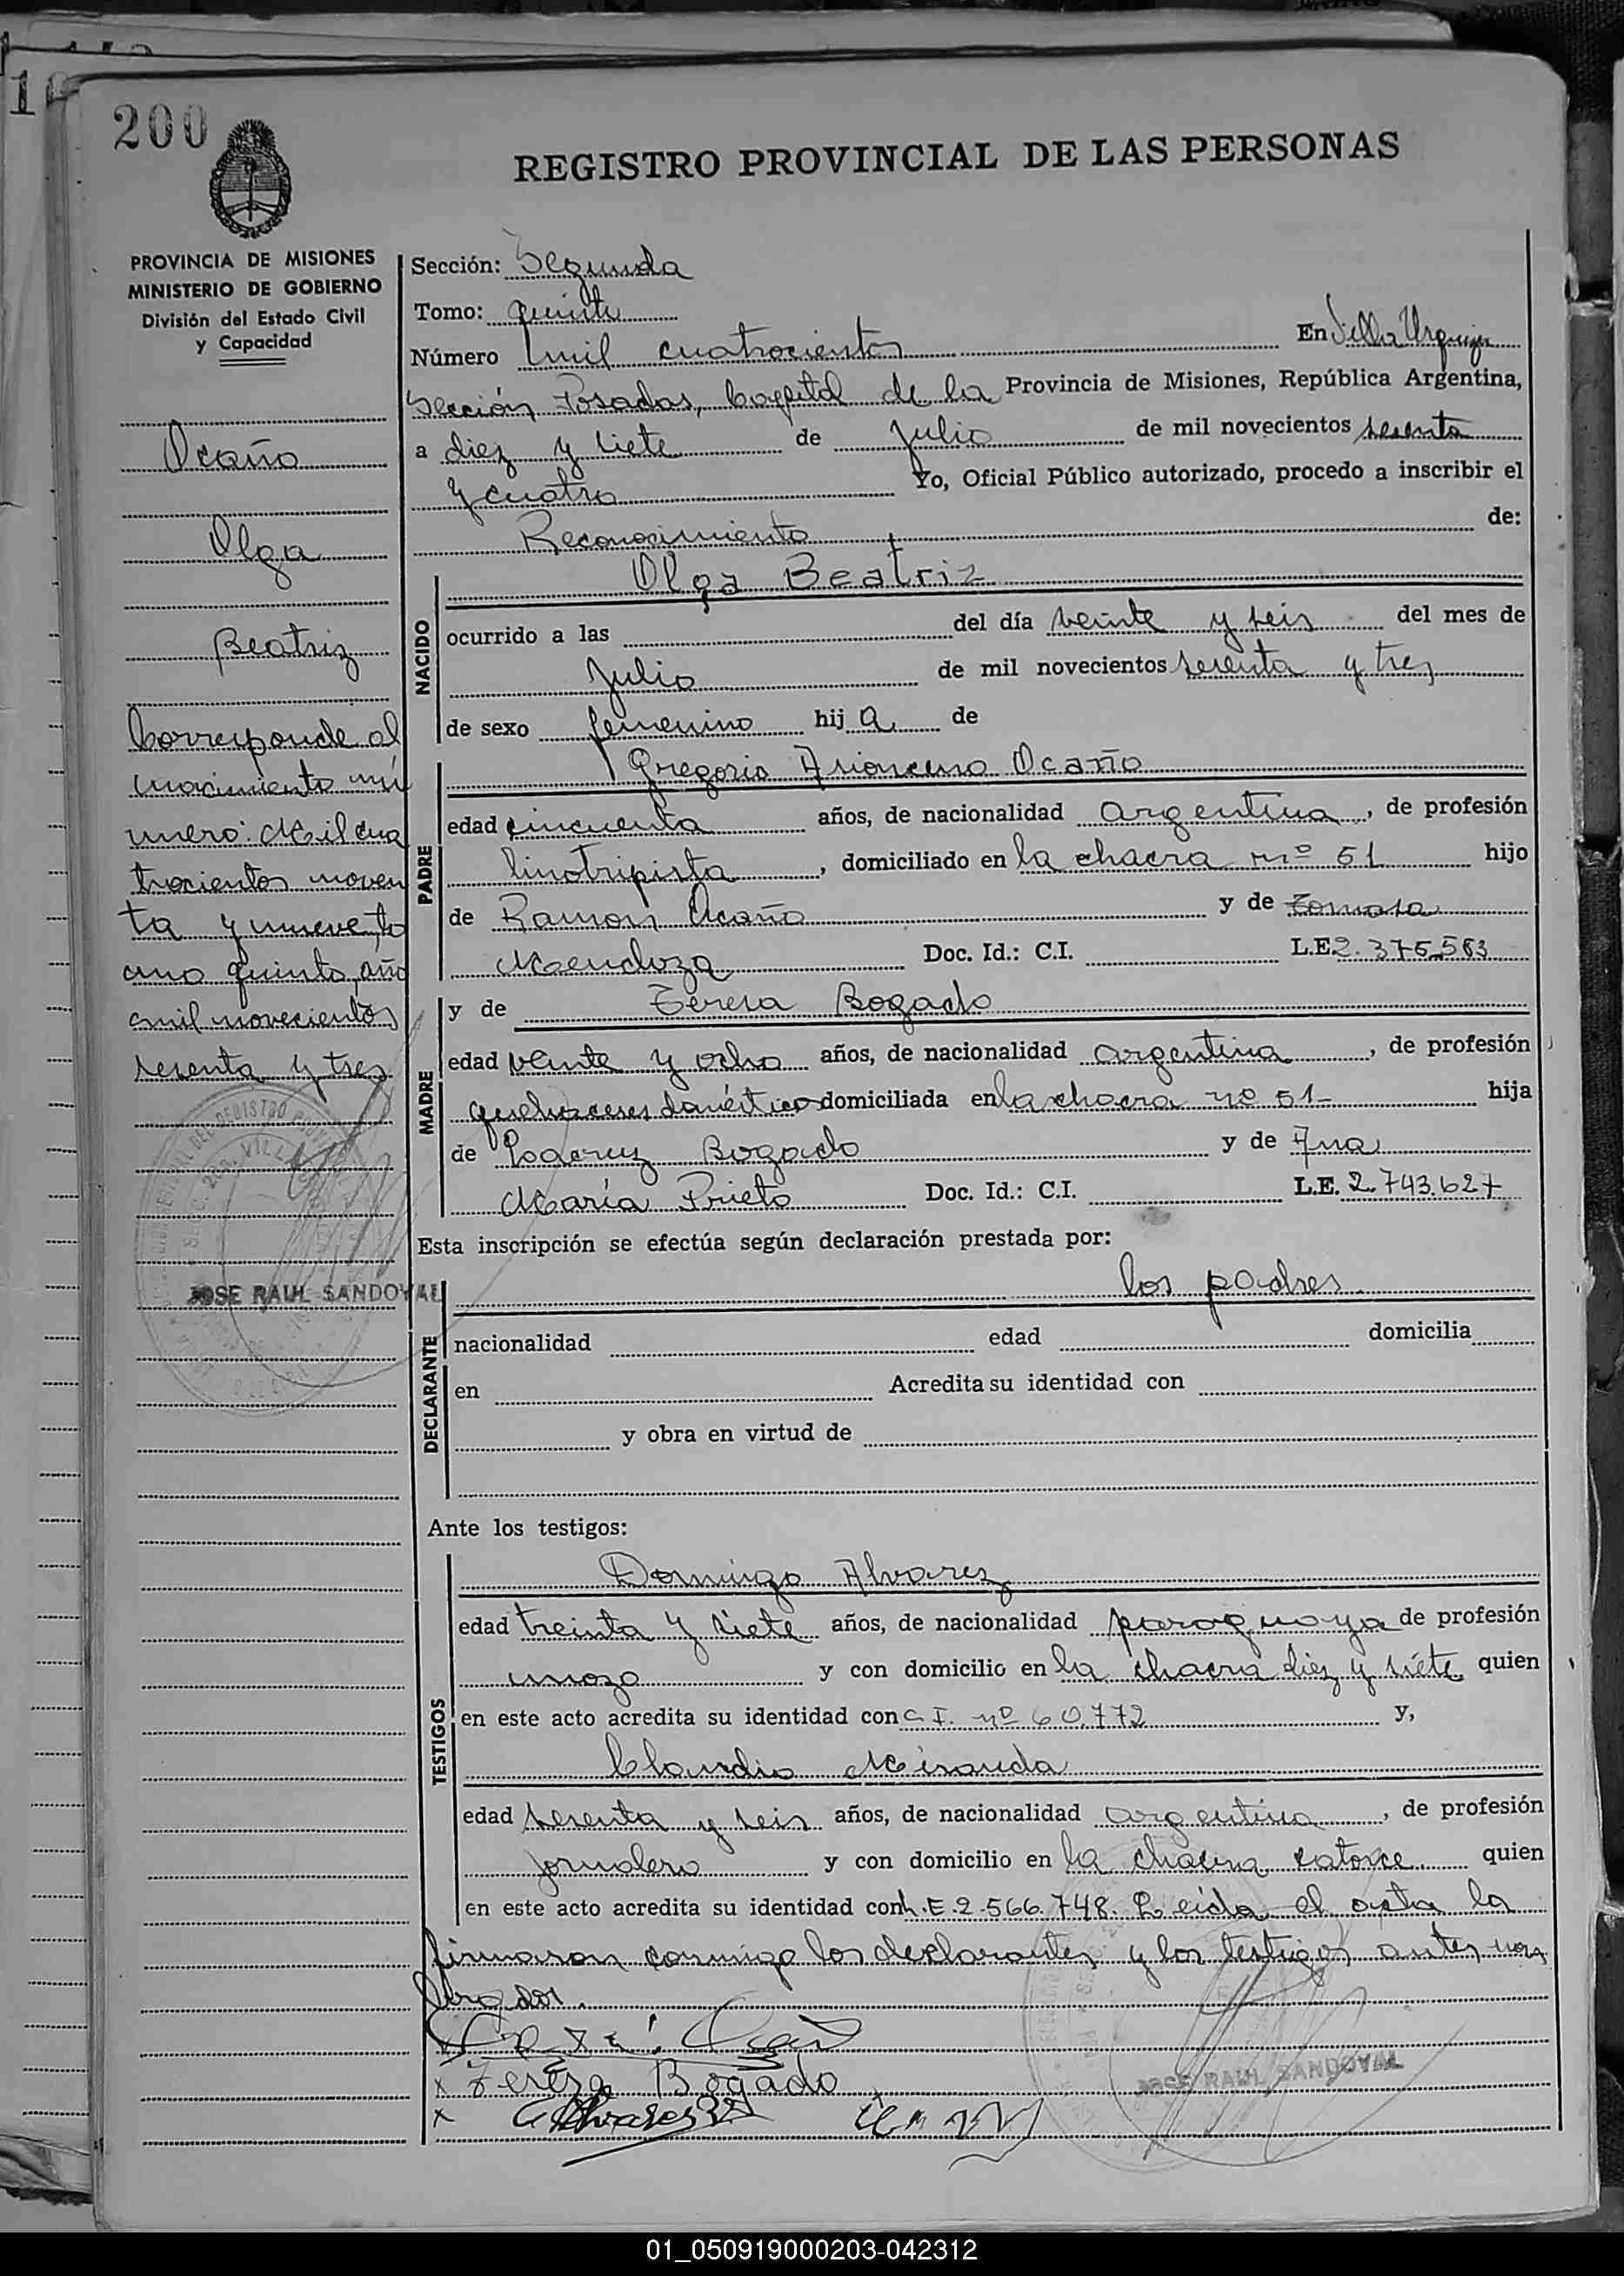 200
REGISTRO PROVINCIAL DE LAS PERSONAS
PROVINCIA DE MISIONES
MINISTERIO DE GOBIERNO
División del Estado Civil
y Capacidad
Ocaño
Olga
Beatriz
Corresponde al
nacimiento nú
mero: Mil cua
trocientos noven
ta y nueve, to
mo quinto, año
mil novecientos
sesenta y tres
JOSE RAUL SANDOVAL
Sección: Segunda
Tomo: quinto
Número mil cuatrocientos En Villa Urquiza
Sección Posadas, Capital de la Provincia de Misiones, República Argentina,
a diez y siete de Julio de mil novecientos sesenta
y cuatro Yo, Oficial Público autorizado, procedo a inscribir el
Reconocimiento de:
NACIDO
Olga Beatriz
ocurrido a las del día veinte y seis del mes de
Julio de mil novecientos sesenta y tres
de sexo femenino hij a de
PADRE
Gregorio Ocaño
edad cincuenta años, de nacionalidad argentina, de profesión
linotripista, domiciliado en la chacra nº 51 hijo
de Ramon Ocaño y de Tomasa
Mendoza Doc. Id.: C.I. L.E 2.375.563
MADRE
y de Teresa Bogado
edad veinte y ocho años, de nacionalidad argentina, de profesión
quehaceres doméstico domiciliada en la chacra nº 51- hija
de Bogado y de Ana
María Prieto Doc. Id.: C.I. L.E. 2.743.627
Esta inscripción se efectúa según declaración prestada por:
DECLARANTE
los padres
nacionalidad edad domicilia
en Acredita su identidad con
y obra en virtud de
Ante los testigos:
TESTIGOS
Domingo Alvarez
edad treinta y siete años, de nacionalidad paraguaya de profesión
mozo y con domicilio en la chacra diez y siete, quien
en este acto acredita su identidad con C.I. nº 60.772 y,
Claudio Miranda
edad sesenta y seis años, de nacionalidad argentina, de profesión
jornalero y con domicilio en la chacra catorce. quien
en este acto acredita su identidad con L.E. 2.566.748. Leída el acta la
firmaron conmigo los declarantes y los testigos antes nom
brados.
x Teresa Bogado
x
JOSE RAUL SANDOVAL
01_050919000203-042312